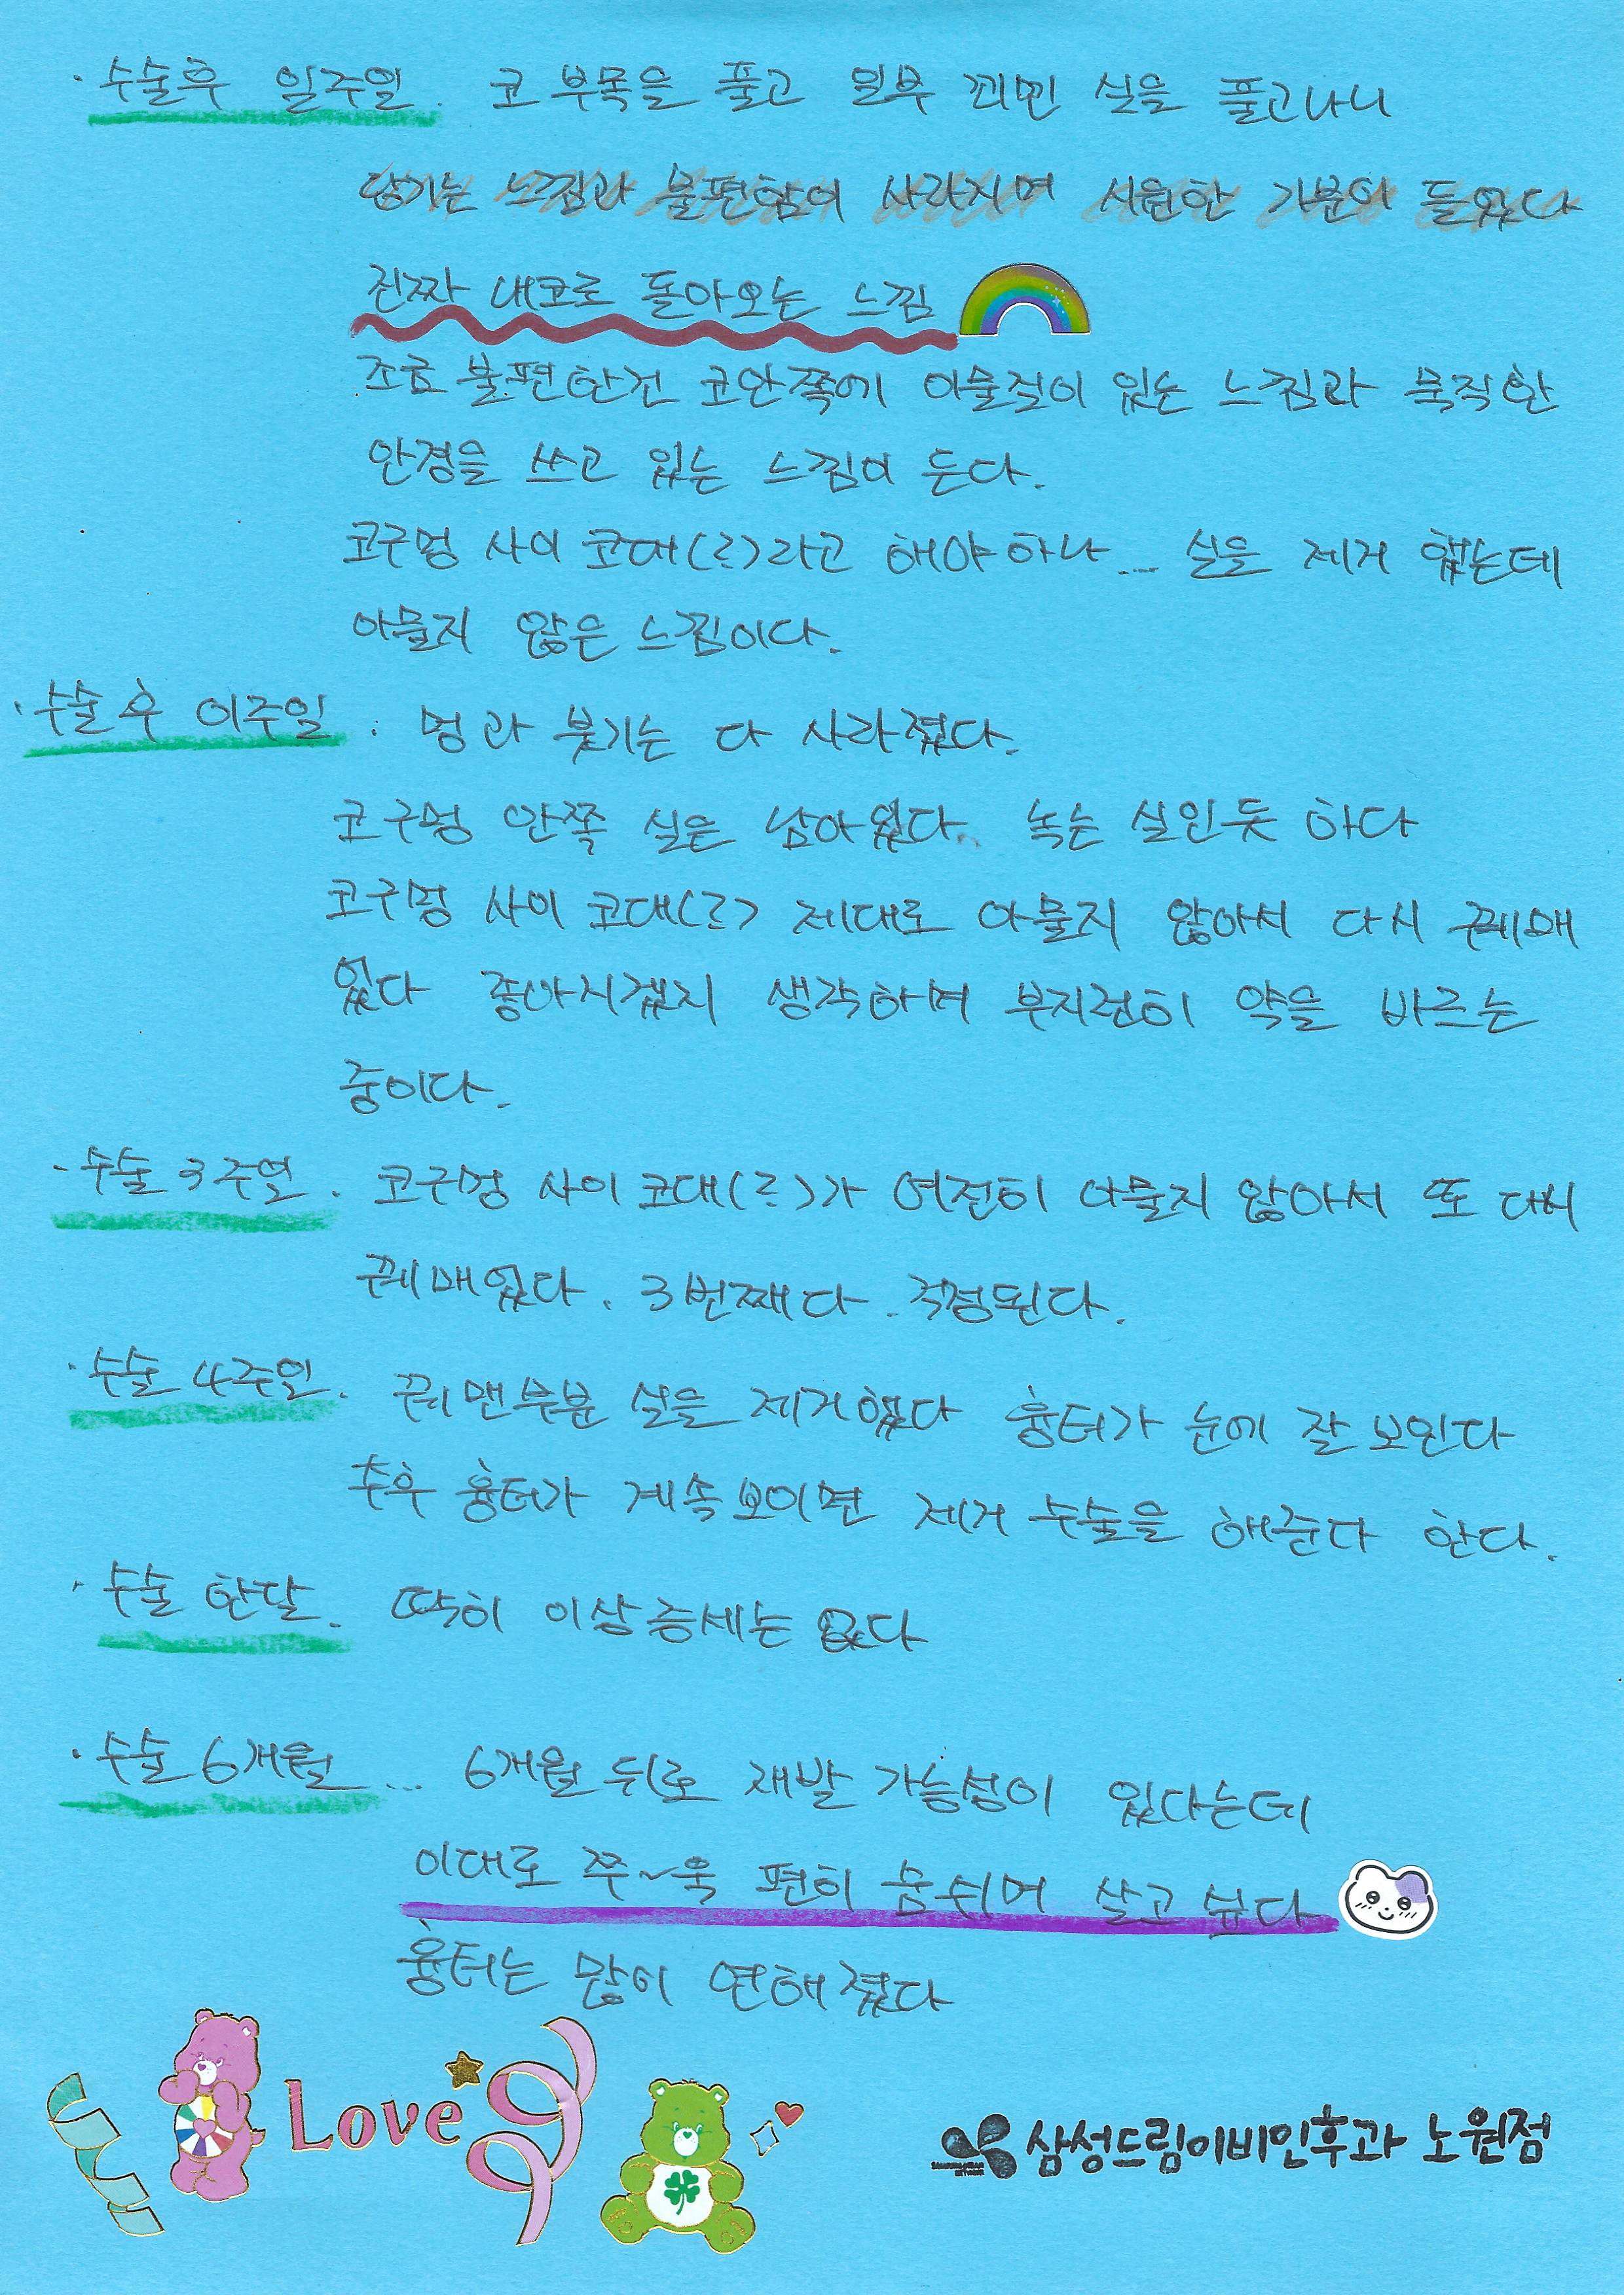 · 수술후 일주일. 코 부목을 풀고 일부 꾀민 실을 풀고나니
당기는 느낌과 불편함이 사라지며 시원한 기분이 들었다
진짜 내코로 돌아오는 느낌
조금 불편한건 코안쪽에 이물질이 있는 느낌과 묵직한
안경을 쓰고 있는 느낌이 든다.
코구멍 사이 코대(?)라고 해야하나... 실을 제거 했는데
아물지 않은 느낌이다.
· 수술 후 이주일 : 멍과 붓기는 다 사라졌다.
코구멍 안쪽 실은 남아있다. 녹는 실인듯 하다
코구멍 사이 코대(?) 제대로 아물지 않아서 다시 꿰매
었다 좋아지겠지 생각하며 부지런히 약을 바르는
중이다.
· 수술 3주일. 코구멍 사이 코대(?)가 여전히 아물지 않아서 또 다시
꿰매었다. 3번째다. 걱정된다.
· 수술 4주일. 꿰맨부분 실을 제거했다 흉터가 눈에 잘 보인다
추후 흉터가 계속보이면 제거 수술을 해준다 한다.
· 수술 한달. 딱히 이상증세는 없다
· 수술 6개월... 6개월 뒤로 재발 가능성이 있다는데
이대로 쭈~욱 편히 숨쉬며 살고 싶다
흉터는 많이 연해졌다
Love
삼성드림이비인후과 노원점